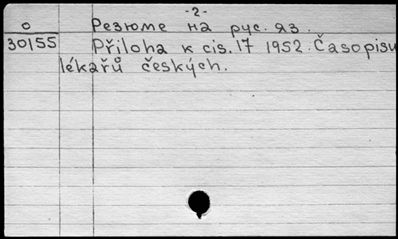 -2-
о Резюме на рус. яз.
30155 Příloha k cis. 17 1952. Časopisu
lékařů českých.